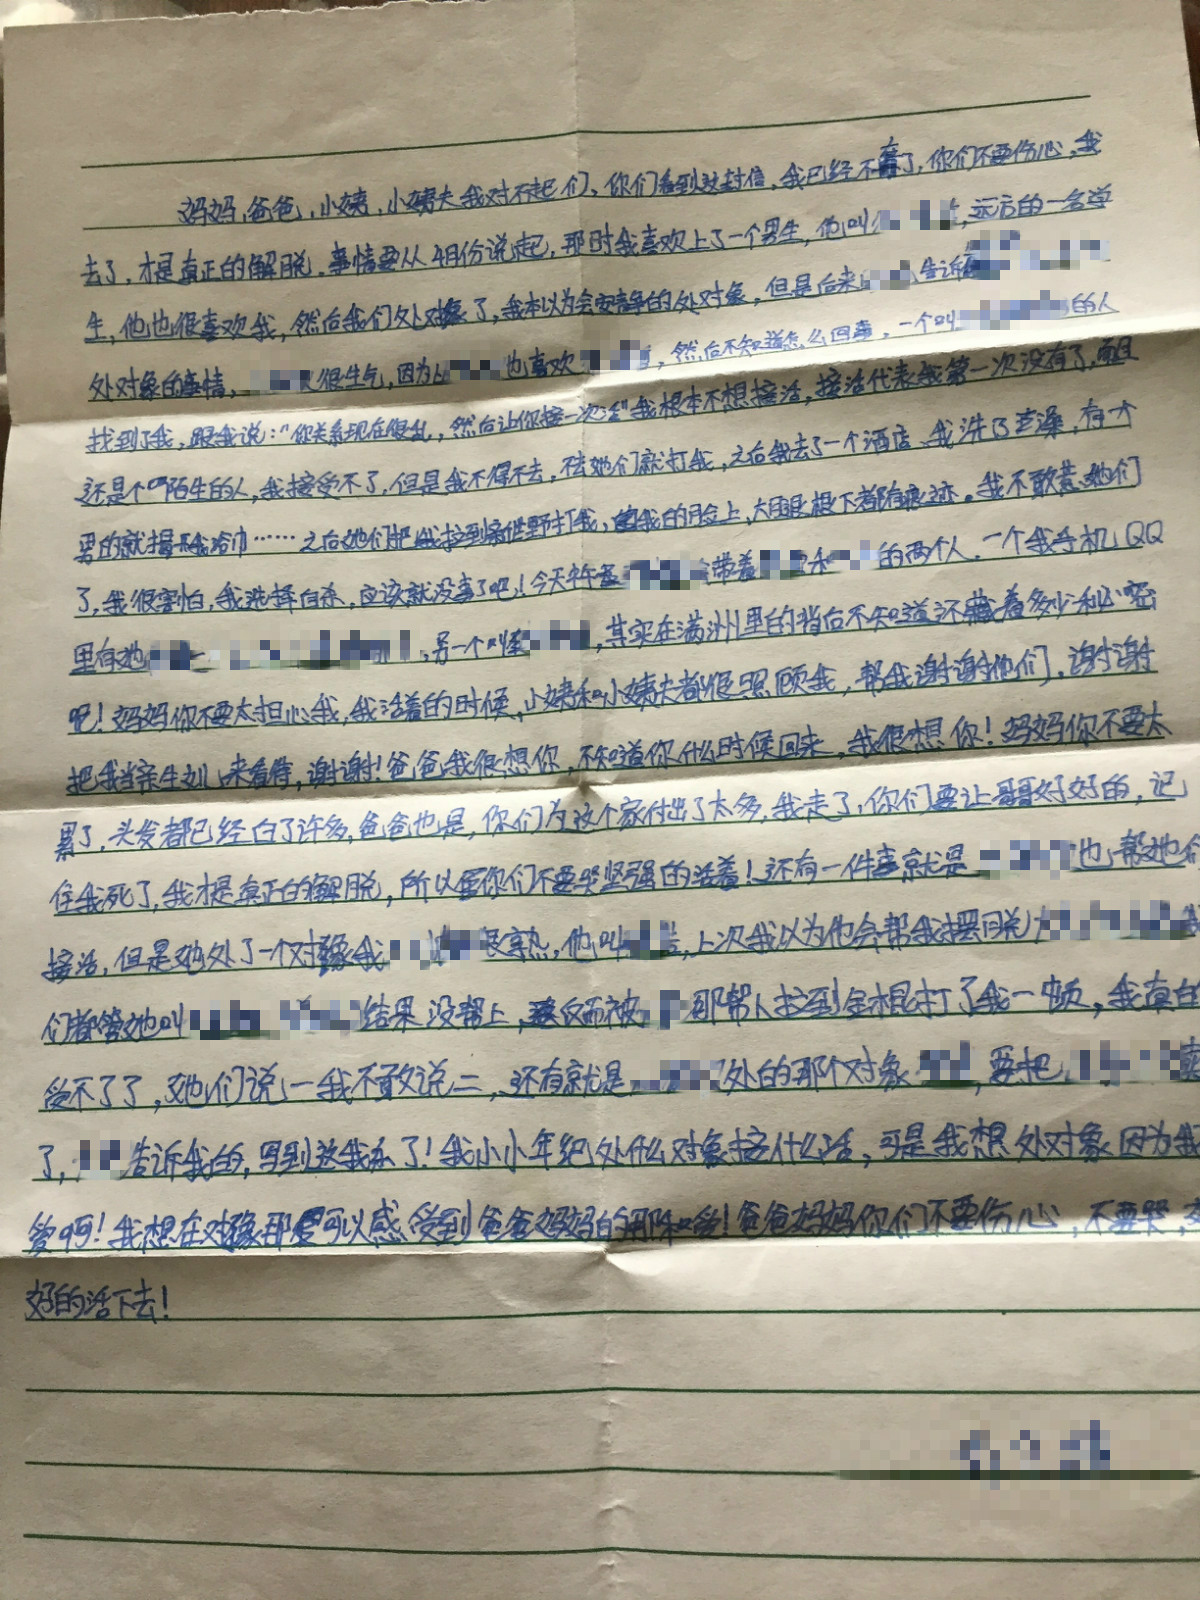 妈妈,爸爸,小姨,小姨夫我对不起们、你们看到这封信,我已经不在了,你们不要伤心,我
去了,才是真正的解脱。事情要从4月份说起,那时我喜欢上了一个男生,他叫,远方的一名学
生,他也很喜欢我,然后我们处对象了,我本以为会安静的处对象,但是后来告诉
处对象的事情,很生气,因为也喜欢,然后不知道怎么回事,一个叫的人
找到了我,跟我说:"你关系现在很乱,然后让你接一次活"我根本不想接活,接活代表我第一次没有了,而且
还是个陌生的人,我接受不了,但是我不得不去,不去她们就打我,之后我去了一个酒店,我洗了澡,有个
男的就把我浴巾……之后她们把我拉到打我,我的脸上,大腿根下都有痕迹。我不敢惹她们
了,我很害怕,我选择自杀,应该就没事了吧!今天带着和的两个人,一个我手机QQ
里有她,另一个叫,其实在满洲里的背后不知道还藏着多少秘密
吧!妈妈你不要太担心我,我活着的时候,小姨和小姨夫都很照顾我,帮我谢谢他们,谢谢
把我当亲生女儿来看待,谢谢!爸爸我很想你,不知道你什么时候回来,我很想你!妈妈你不要太
累了,头发都已经白了许多,爸爸也是,你们为这个家付出了太多,我走了,你们要让哥哥好好的,记
住我死了,我才是真正的解脱,所以你们不要哭坚强的活着!还有一件事就是也帮她们
接活,但是她处了一个对象我很熟,他叫,上次我以为他会帮我摆回说
们都管她叫结果没帮上,反而被那帮人拉到打了我一顿,我真的
受不了了,她们说一我不敢说二、还有就是处的那个对象,要把
了,告诉我的,写到这我哭了!我小小年纪处什么对象接什么活,可是我想处对象因为我
爱啊!我想在对象那可以感受到爸爸妈妈的爱!爸爸妈妈你们不要伤心,不要哭,
好的活下去!